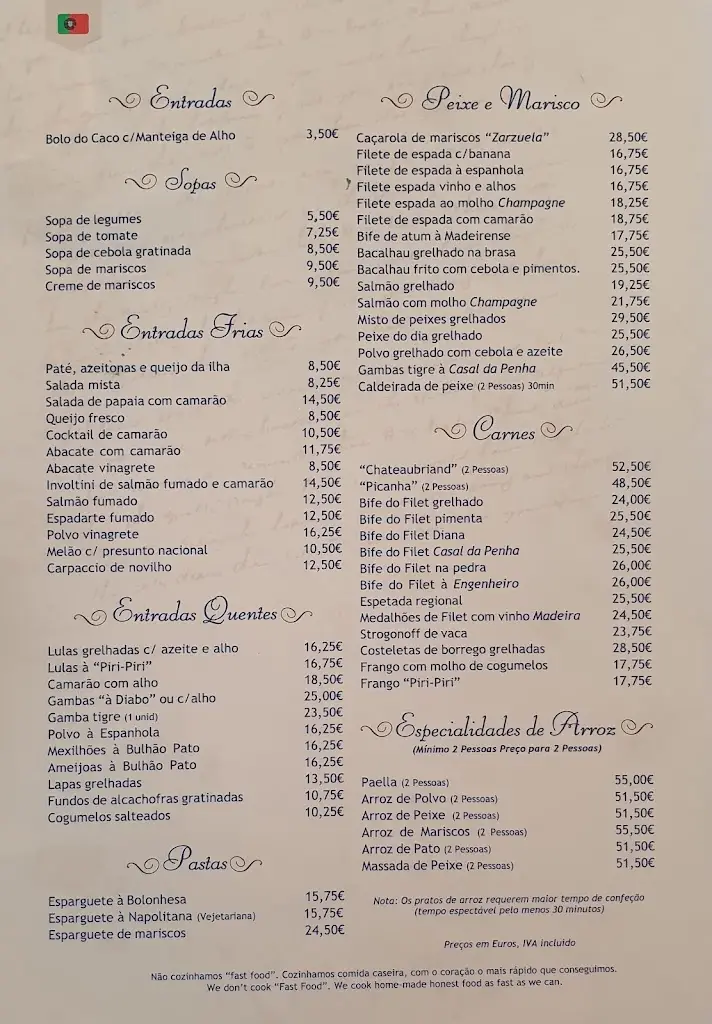 Entradas
Bolo do Caco c/Manteiga de Alho 3,50€
Sopas
Sopa de legumes 5,50€
Sopa de tomate 7,25€
Sopa de cebola gratinada 8,50€
Sopa de mariscos 9,50€
Creme de mariscos 9,50€
Entradas Frias
Paté, azeitonas e queijo da ilha 8,50€
Salada mista 8,25€
Salada de papaia com camarão 14,50€
Queijo fresco 8,50€
Cocktail de camarão 10,50€
Abacate com camarão 11,75€
Abacate vinagrete 8,50€
Involtini de salmão fumado e camarão 14,50€
Salmão fumado 12,50€
Espadarte fumado 12,50€
Polvo vinagrete 16,25€
Melão c/ presunto nacional 10,50€
Carpaccio de novilho 12,50€
Entradas Quentes
Lulas grelhadas c/ azeite e alho 16,25€
Lulas à “Piri-Piri” 16,75€
Camarão com alho 18,50€
Gambas “à Diabo” ou c/alho 25,00€
Gamba tigre (1 unid) 23,50€
Polvo à Espanhola 16,25€
Mexilhões à Bulhão Pato 16,25€
Ameijoas à Bulhão Pato 16,25€
Lapas grelhadas 13,50€
Fundos de alcachofras gratinadas 10,75€
Cogumelos salteados 10,25€
Pastas
Esparguete à Bolonhesa 15,75€
Esparguete à Napolitana (Vejetariana) 15,75€
Esparguete de mariscos 24,50€
Peixe e Marisco
Caçarola de mariscos “Zarzuela” 28,50€
Filete de espada c/banana 16,75€
Filete de espada à espanhola 16,75€
Filete espada vinho e alhos 16,75€
Filete espada ao molho Champagne 18,25€
Filete de espada com camarão 18,75€
Bife de atum à Madeirense 17,75€
Bacalhau grelhado na brasa 25,50€
Bacalhau frito com cebola e pimentos. 25,50€
Salmão grelhado 19,25€
Salmão com molho Champagne 21,75€
Misto de peixes grelhados 29,50€
Peixe do dia grelhado 25,50€
Polvo grelhado com cebola e azeite 26,50€
Gambas tigre à Casal da Penha 45,50€
Caldeirada de peixe (2 Pessoas) 30min 51,50€
Carnes
“Chateaubriand” (2 Pessoas) 52,50€
“Picanha” (2 Pessoas) 48,50€
Bife do Filet grelhado 24,00€
Bife do Filet pimenta 25,50€
Bife do Filet Diana 24,50€
Bife do Filet Casal da Penha 25,50€
Bife do Filet na pedra 26,00€
Bife do Filet à Engenheiro 26,00€
Espetada regional 25,50€
Medalhões de Filet com vinho Madeira 24,50€
Strogonoff de vaca 23,75€
Costeletas de borrego grelhadas 28,50€
Frango com molho de cogumelos 17,75€
Frango “Piri-Piri” 17,75€
Especialidades de Arroz
(Mínimo 2 Pessoas Preço para 2 Pessoas)
Paella (2 Pessoas) 55,00€
Arroz de Polvo (2 Pessoas) 51,50€
Arroz de Peixe (2 Pessoas) 51,50€
Arroz de Mariscos (2 Pessoas) 55,50€
Arroz de Pato (2 Pessoas) 51,50€
Massada de Peixe (2 Pessoas) 51,50€
Nota: Os pratos de arroz requerem maior tempo de confeção
(tempo espectável pelo menos 30 minutos)
Preços em Euros, IVA incluido
Não cozinhamos “fast food”. Cozinhamos comida caseira, com o coração o mais rápido que conseguimos.
We don't cook “Fast Food”. We cook home-made honest food as fast as we can.